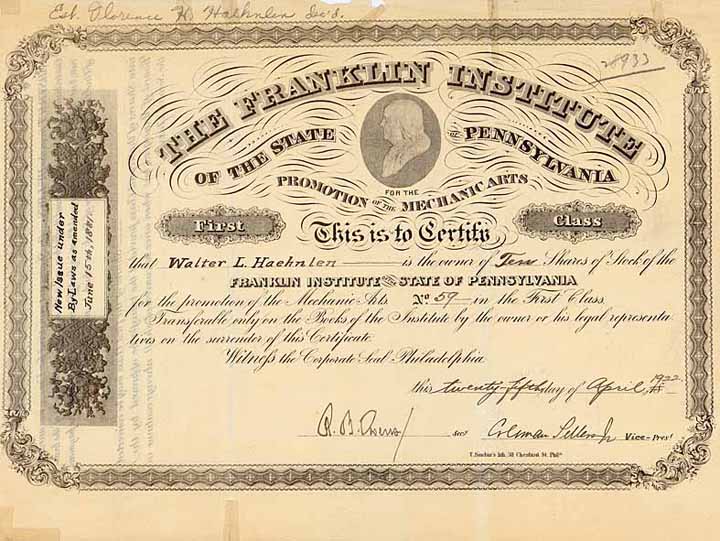 Est. Florence H. Haehnlen Dec'd.
28933
THE FRANKLIN INSTITUTE
OF THE STATE OF PENNSYLVANIA
FOR THE
PROMOTION OF THE MECHANIC ARTS
First Class
This is to Certify
that Walter L. Haehnlen is the owner of Ten Shares of Stock of the
FRANKLIN INSTITUTE OF THE STATE OF PENNSYLVANIA
for the promotion of the Mechanic Arts No 59 in the First Class
Transferable only on the Books of the Institute by the owner or his legal representa
tives on the surrender of this Certificate.
Witness the Corporate Seal Philadelphia
this twenty-fifth day of April, 1922
R. B. Owens Secy Coleman Sellers Jr Vice-Prest
T. Sinclair's lith. 311 Chestnut St. Phila
New Issue under
By Laws as amended
June 15th, 1881.